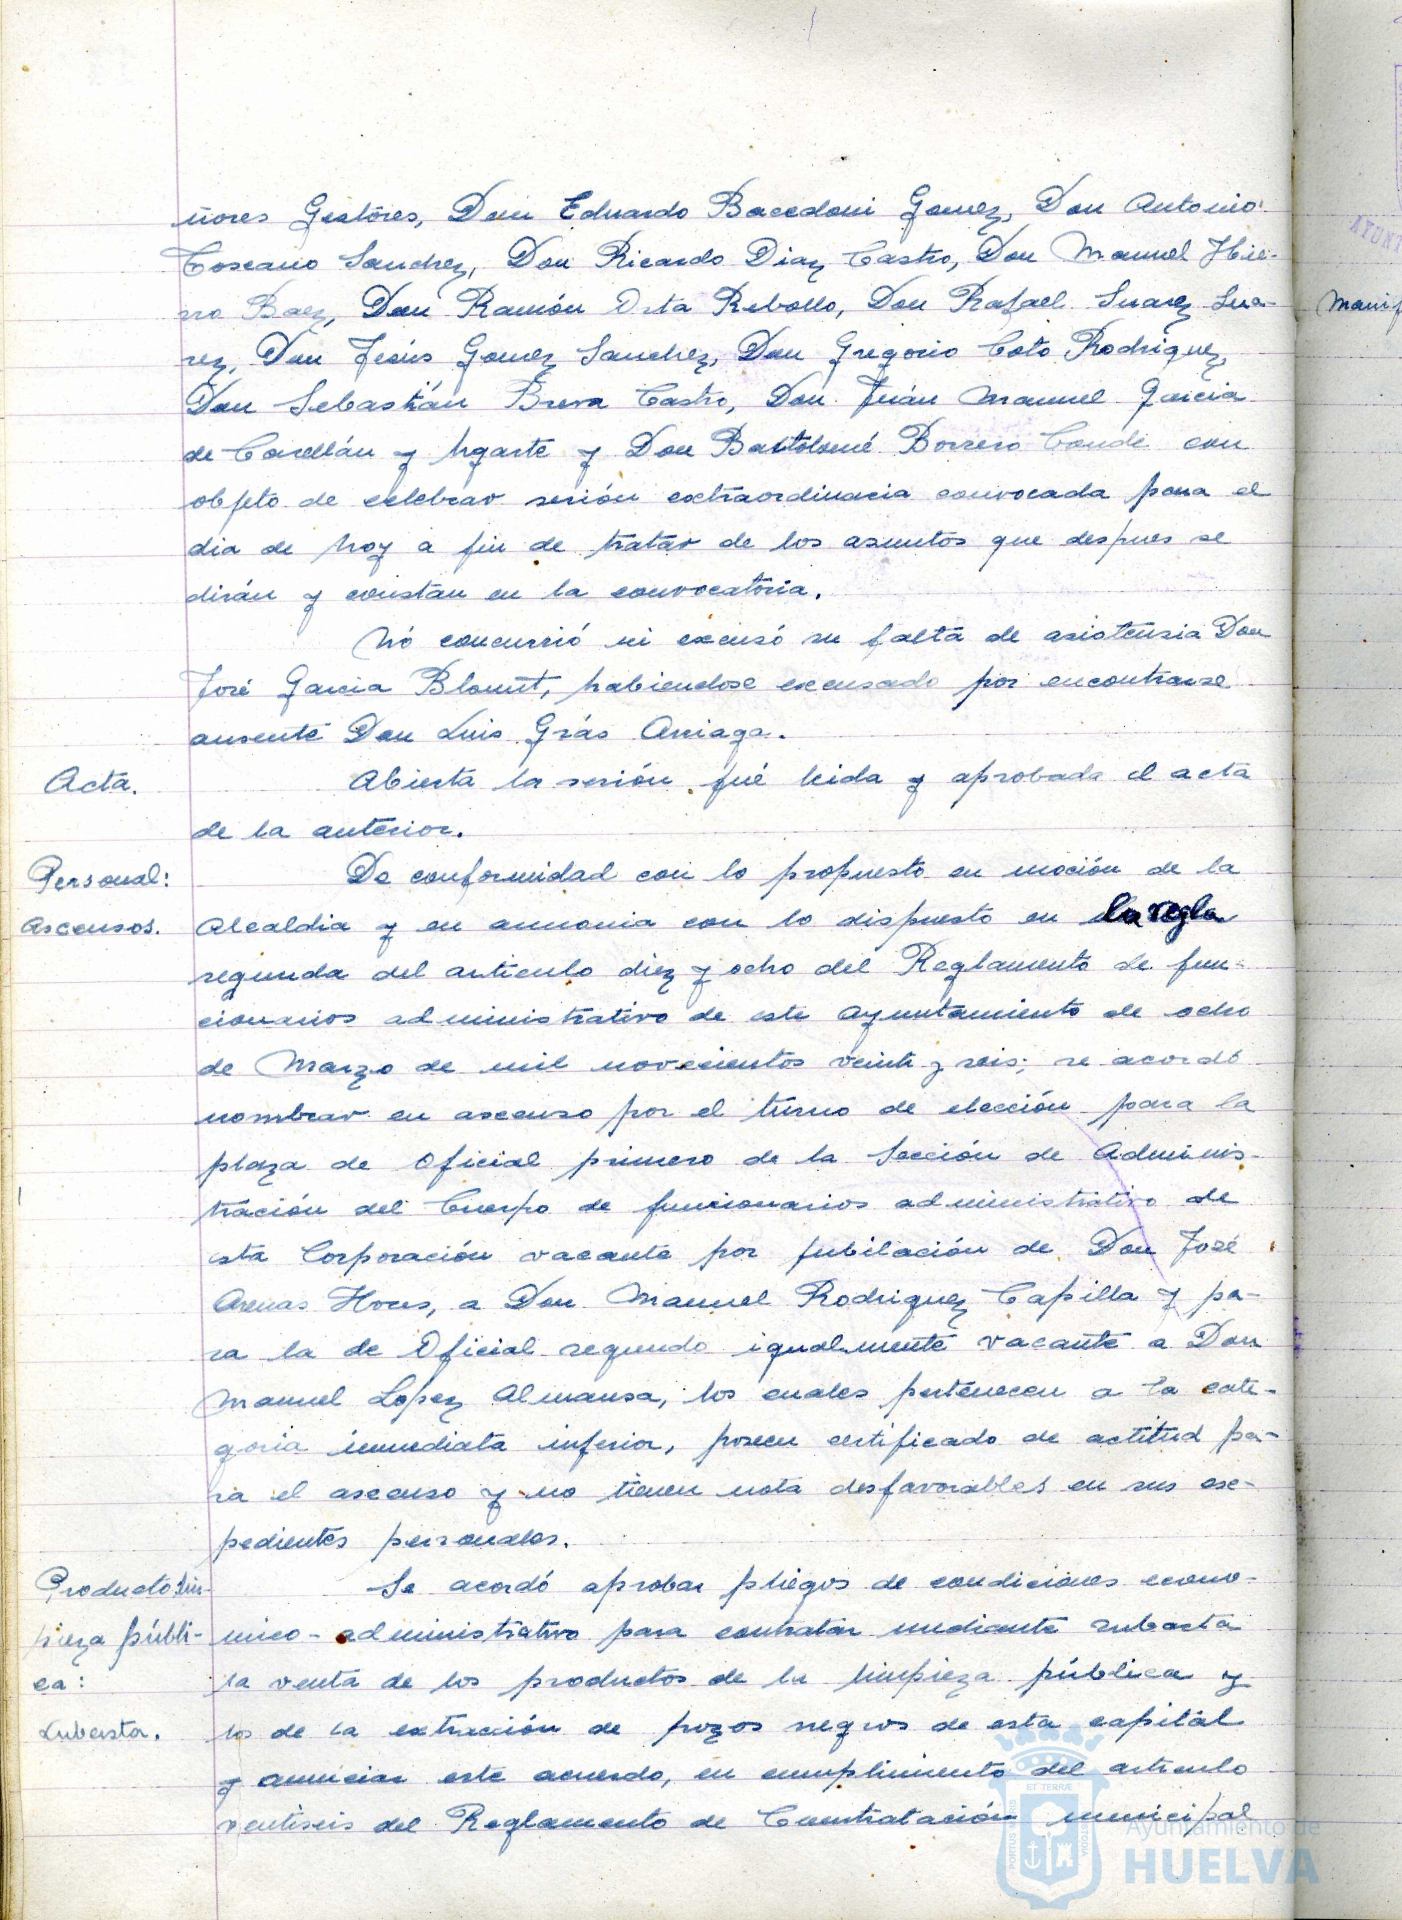 ñores Gestóres, Don Eduardo Bacedoni Gomez, Don Antonio
Toscano Sanchez, Don Ricardo Diaz Castro, Don Manuel Hie-
rro Baez, Don Ramón Orta Rebollo, Don Rafael Suarez Sua-
rez, Don Jesús Gomez Sanchez, Don Gregorio Coto Rodriguez,
Don Sebastián Breva Castro, Don Juán Manuel Garcia
de Casellán y Ugarte y Don Bartolomé Borrero Conde con
objeto de celebrar sesión extraordinaria convocada para el
dia de hoy a fin de tratar de los asuntos que despues se
dirán y constan en la convocatoria.
No concurrió ni excusó su falta de asistensia Don
José Garcia Blount, habiendose excusado por encontrarse
ausente Don Luis Grás Arriaga.
Acta.
Abierta la sesión fué leida y aprobada el acta
de la anterior.
Personal:
Ascensos.
De conformidad con lo propuesto en moción de la
Alcaldia y en armonia con lo dispuesto en la regla
segunda del articulo diez y ocho del Reglamento de fun-
cionarios administrativo de este Ayuntamiento de ocho
de Marzo de mil novecientos veinte y seis; se acordó
nombrar en ascenso por el turno de elección para la
plaza de Oficial primero de la Sección de Adminis-
tración del Cuerpo de funcionarios administrativo de
esta Corporación vacante por jubilación de Don José
Arenas Hoces, a Don Manuel Rodriguez Capilla y pa-
ra la de Oficial segundo igualmente vacante a Don
Manuel Lopez Almansa, los cuales pertenecen a la cate-
goria inmediata inferior, poseen certificado de actitud pa-
ra el ascenso y no tienen nota desfavorables en sus ex-
pedientes personales.
Producto lim-
pieza públi-
ca:
Subasta.
Se acordó aprobar pliegos de condiciones econo-
mico-administrativo para contratar mediante subasta
la venta de los productos de la limpieza pública y
los de la extracción de pozos negros de esta capital
y anunciar este acuerdo, en cumplimiento del articulo
ventiseis del Reglamento de Contratación municipal
Manif
AYUNT
ET TERRÆ
PORTUS MARIS
CUSTODIA
Ayuntamiento de
HUELVA